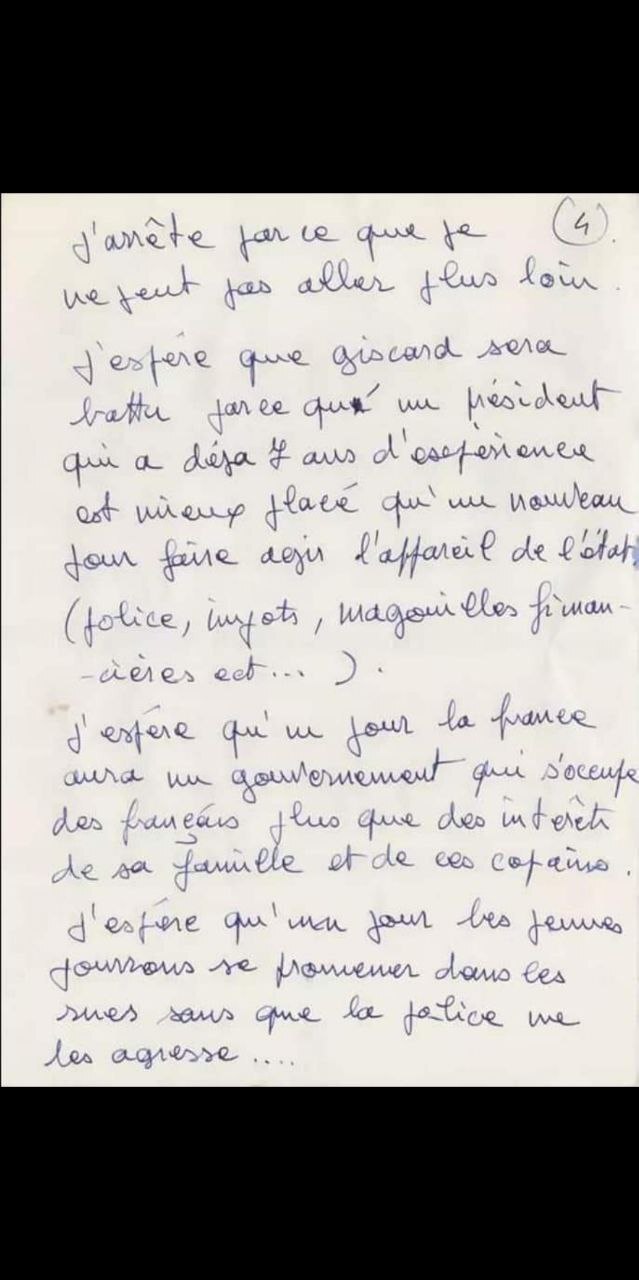 j'arrête parce que je (4).
ne peut pas aller plus loin.
J'espère que giscard sera
battu parce qu' un président
qui a déja 7 ans d'expérience
est mieux placé qu'un nouveau
pour faire agir l'appareil de l'état
(police, impots, magouilles finan-
-cières ect... ).
J'espère qu'un jour la france
aura un gouvernement qui s'occupe
des français plus que des intérêts
de sa famille et de ces copains.
J'espère qu'un jour les jeunes
pourrons se promener dans les
rues sans que la police ne
les agresse....